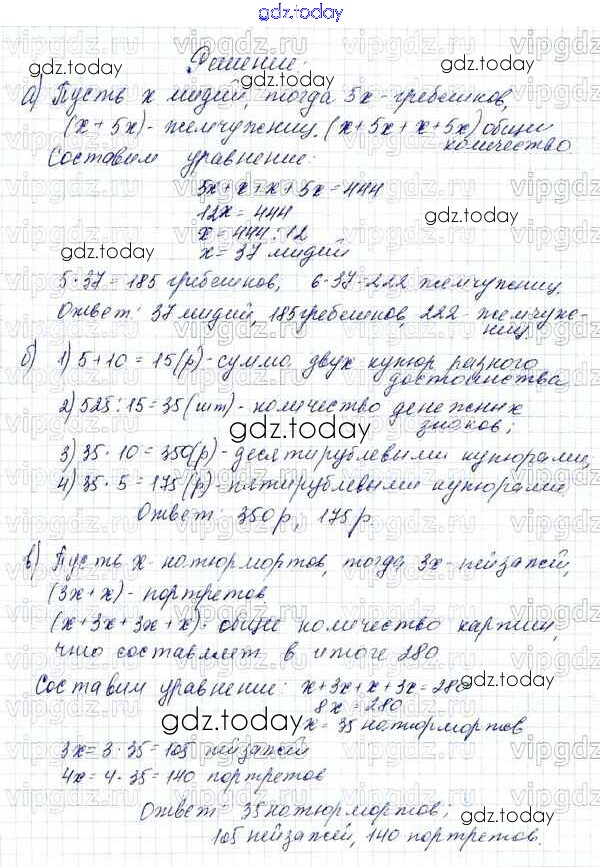 gdz.today
Решение:
а) Пусть х мидий, тогда 5х - гребешков,
(х + 5х) - жемчужниц, (х + 5х + х + 5х) общее
количество
Составим уравнение:
5х + х + х + 5х = 444
12х = 444
х = 444 : 12
х = 37 мидий
5 · 37 = 185 гребешков, 6 · 37 = 222 жемчужниц.
Ответ: 37 мидий, 185 гребешков, 222 - жемчуж-
ниц.
б) 1) 5 + 10 = 15 (р) - сумма двух купюр разного
достоинства
2) 525 : 15 = 35 (шт) - количество денежных
знаков;
3) 35 · 10 = 350 (р) - десятирублевыми купюрами;
4) 35 · 5 = 175 (р) - пятирублевыми купюрами.
Ответ: 350 р, 175 р.
в) Пусть х - натюрмортов, тогда 3х - пейзажей,
(3х + х) - портретов
(х + 3х + 3х + х) - общее количество картин,
что составляет в итоге 280
Составим уравнение: х + 3х + х + 3х = 280
8х = 280
х = 35 натюрмортов
3х = 3 · 35 = 105 пейзажей
4х = 4 · 35 = 140 портретов
Ответ: 35 натюрмортов;
105 пейзажей, 140 портретов.
gdz.today